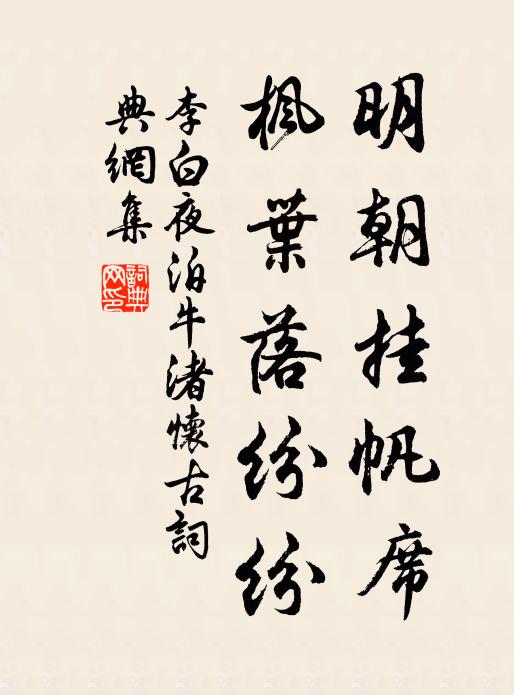 明朝挂帆席
枫葉落纷纷
李白夜泊牛渚懷古詞
典網集
詞典
网印